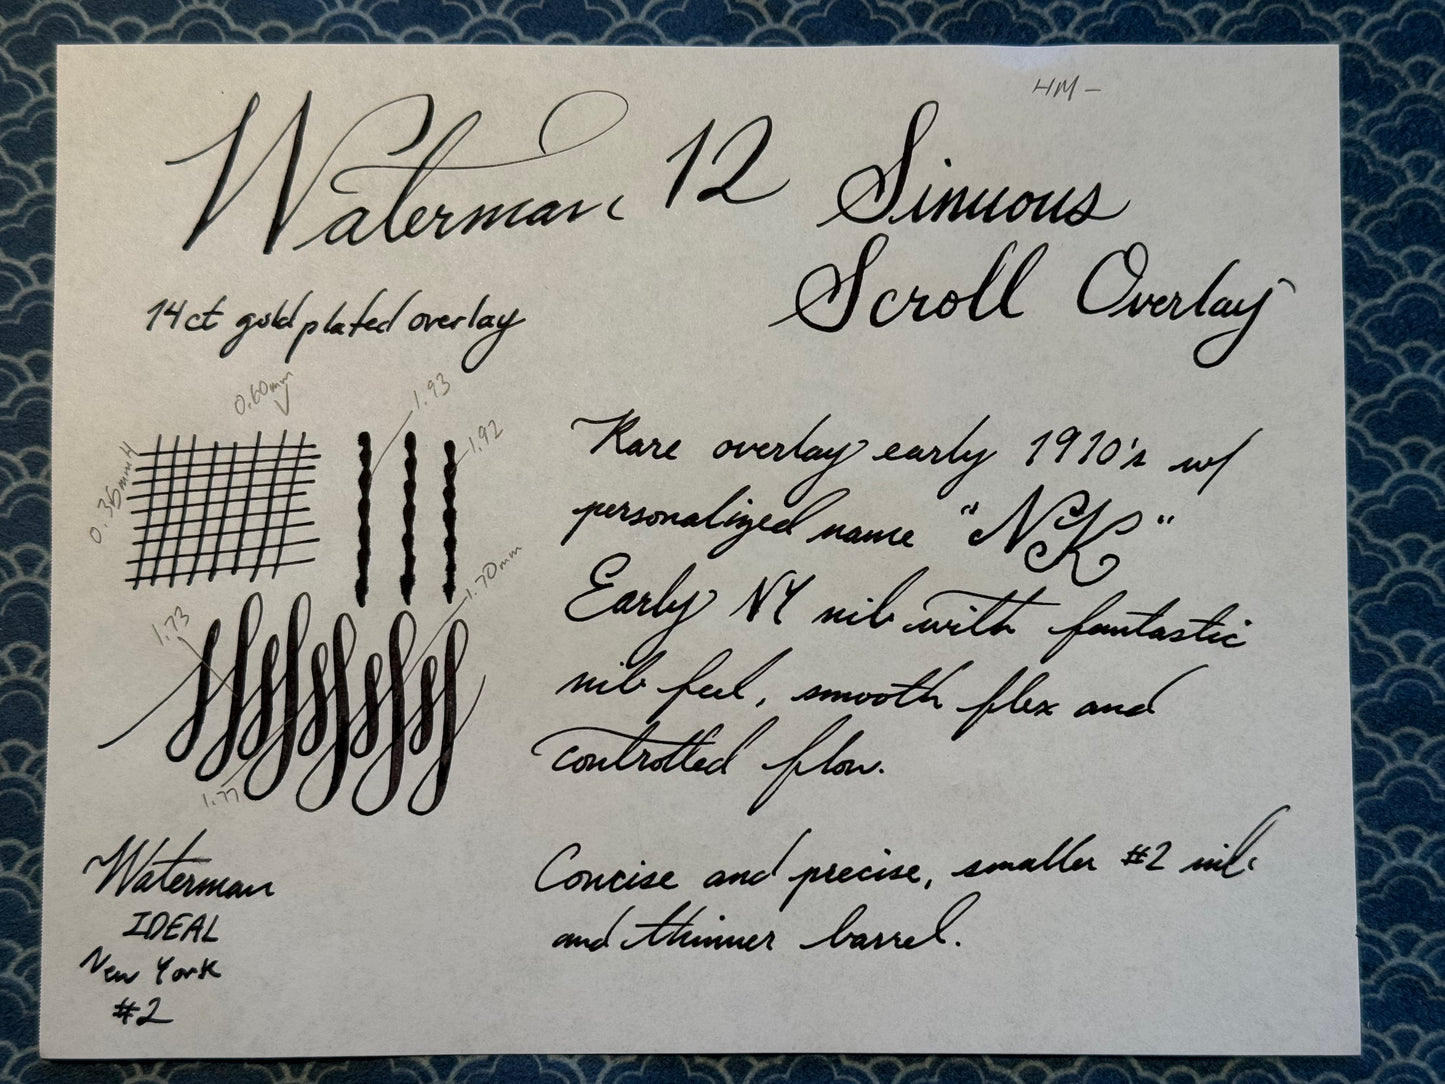 HM-
Waterman 12 Sinuous
Scroll Overlay
14ct gold plated overlay
0.60mm
1.93
1.92
0.36mm H
1.70mm
1.73
1.77
Rare overlay early 1910's w/
personalized name "NK"
Early NY nib with fantastic
nib feel, smooth flex and
controlled flow.
Concise and precise, smaller #2 nib
and thinner barrel.
Waterman
IDEAL
New York
#2